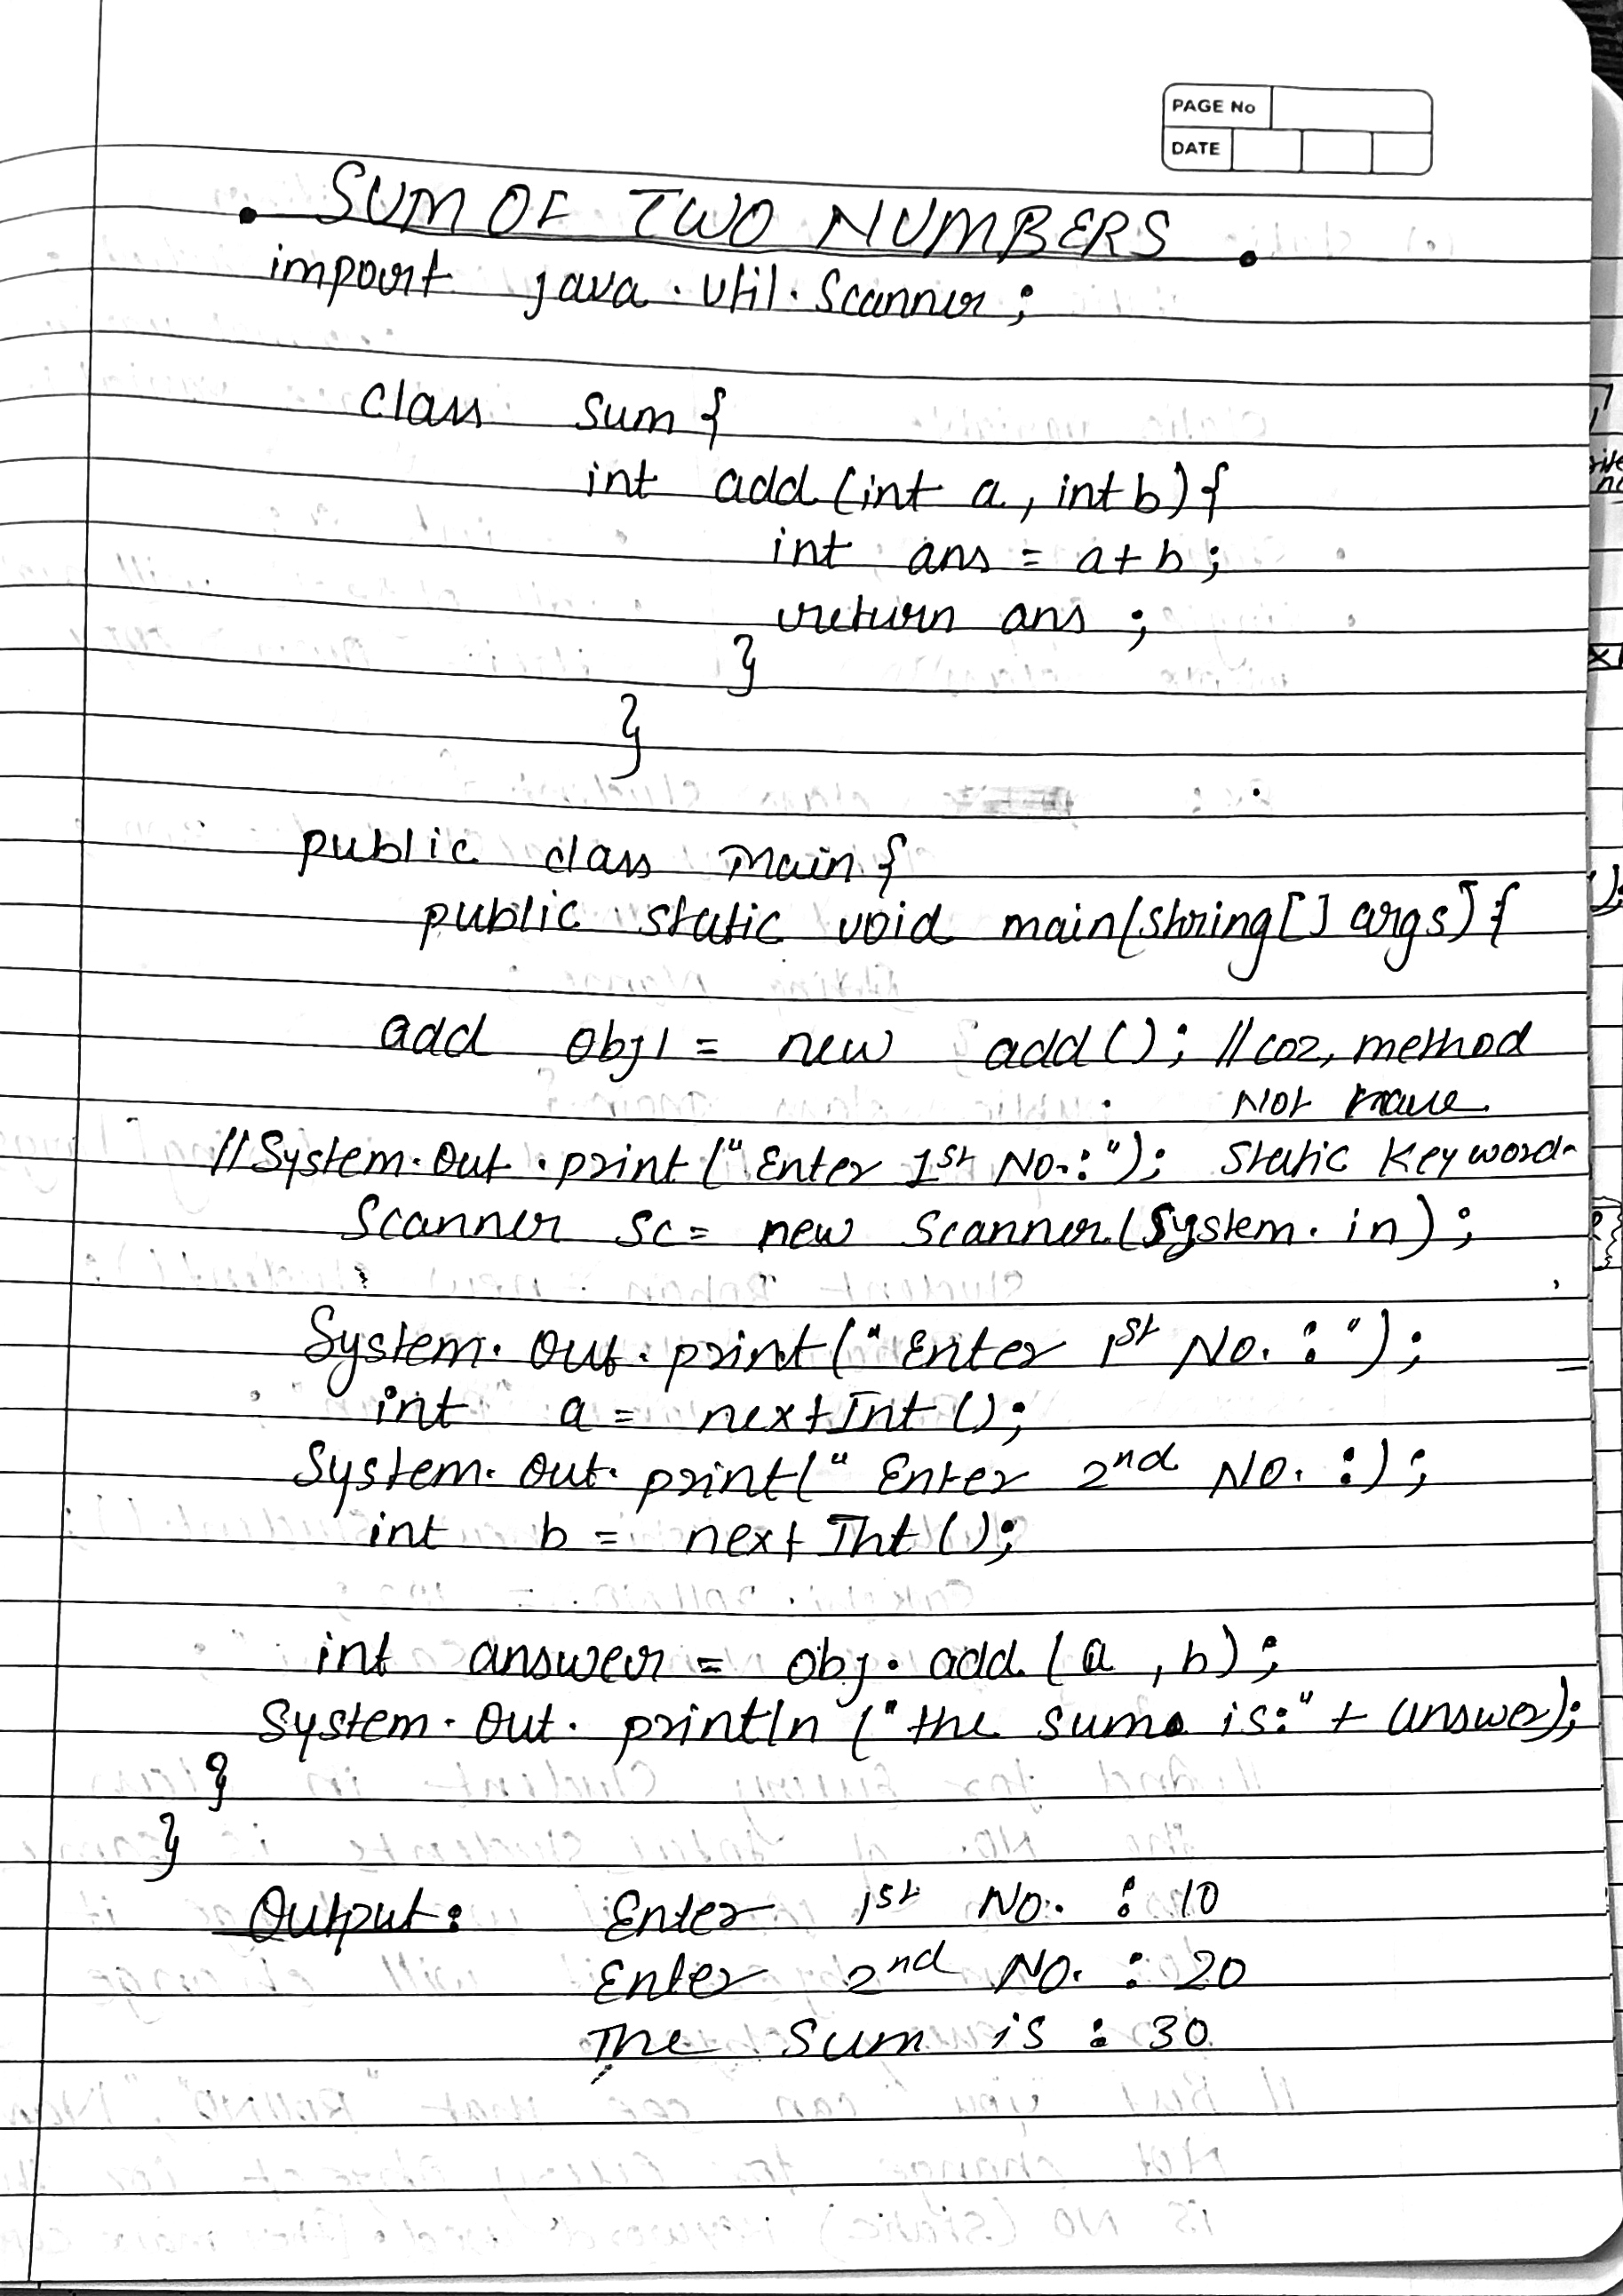 PAGE No
DATE
. SUM OF TWO NUMBERS .
import java.util.Scanner;
class Sum {
int add (int a, int b) {
int ans = a+b;
return ans ;
}
}
public class Main {
public static void main(String[] args) {
add obj1 = new add(); // coz, method
Not have
//System.out.print("Enter 1st No.:"); Static Keyword.
Scanner sc = new Scanner(System.in);
System.out.print("Enter 1st No. : ");
int a = nextInt();
System.out.print(" Enter 2nd No. :);
int b = nextInt();
int answer = obj.add.(a ,b);
System.out.println ("the sum is:" + answer);
}
}
Output: Enter 1st No. : 10
Enter 2nd No. : 20
The Sum is : 30